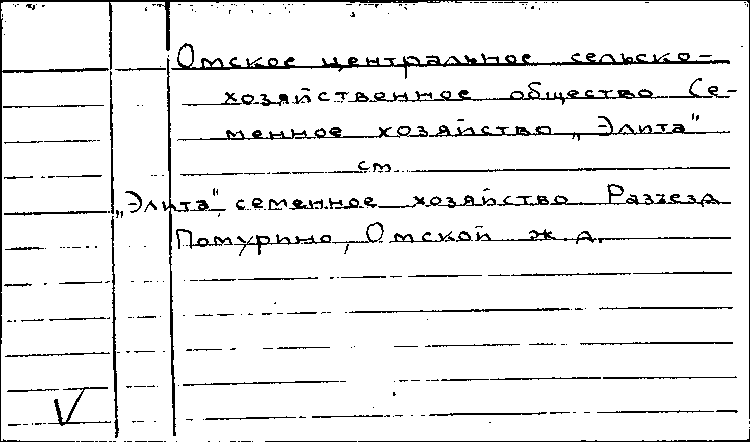 Омское центральное сельско-
хозяйственное общество Се-
менное хозяйство „Элита"
см.
„Элита", семенное хозяйство Разъезд
Помурино, Омской ж. д.
V